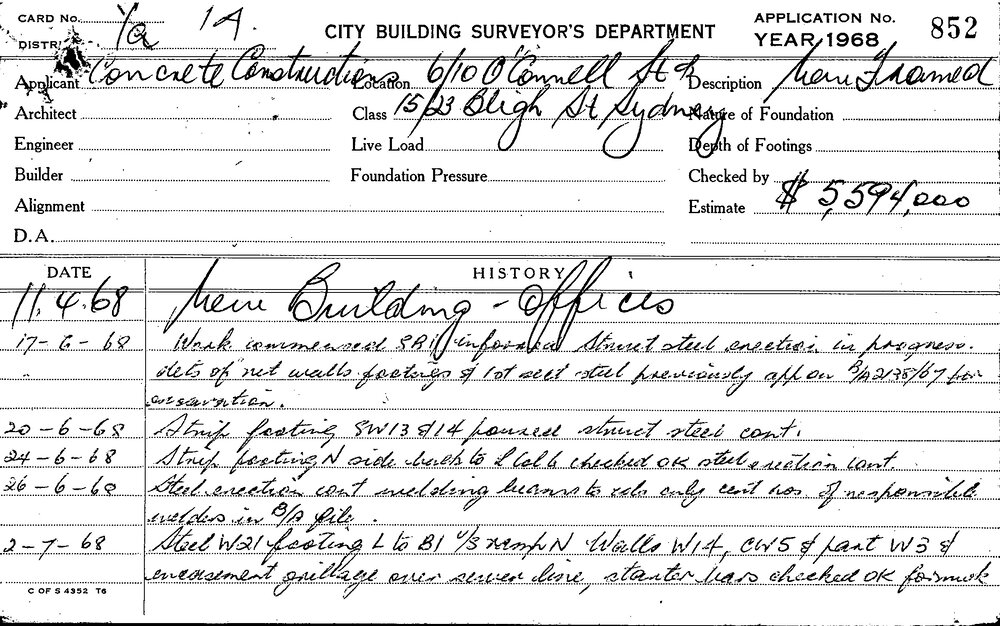 CARD No. 1a 1A.
CITY BUILDING SURVEYOR'S DEPARTMENT
APPLICATION No. 852
YEAR 1968
DISTRICT
Applicant Concrete Constructions Location 6/10 O'Connell St & Description New Framed
Architect Class 15/23 Bligh St Sydney Nature of Foundation
Engineer Live Load Depth of Footings
Builder Foundation Pressure Checked by
Alignment Estimate $ 5,594,000
D.A.
DATE HISTORY
11.4.68 New Building - Offices
17-6-68 Work commenced informed Struct steel erection in progress.
" dets of ret walls footings & 1st sect steel previously app on B/A 2135/67 for
20-6-68 Strip footing SW13 & 14 poured struct steel cont.
24-6-68 Strip footing N side checked OK steel erection cont.
26-6-68 Steel erection cont welding beams to cols only cert nos. of responsible
welders in B/A file.
2-7-68 Steel W21 footing L to B1 u/s ramp N Walls W14, CW5 & part W3 &
encasement grillage over sewer line, starter bars checked OK formwk
C OF S 4352 T6